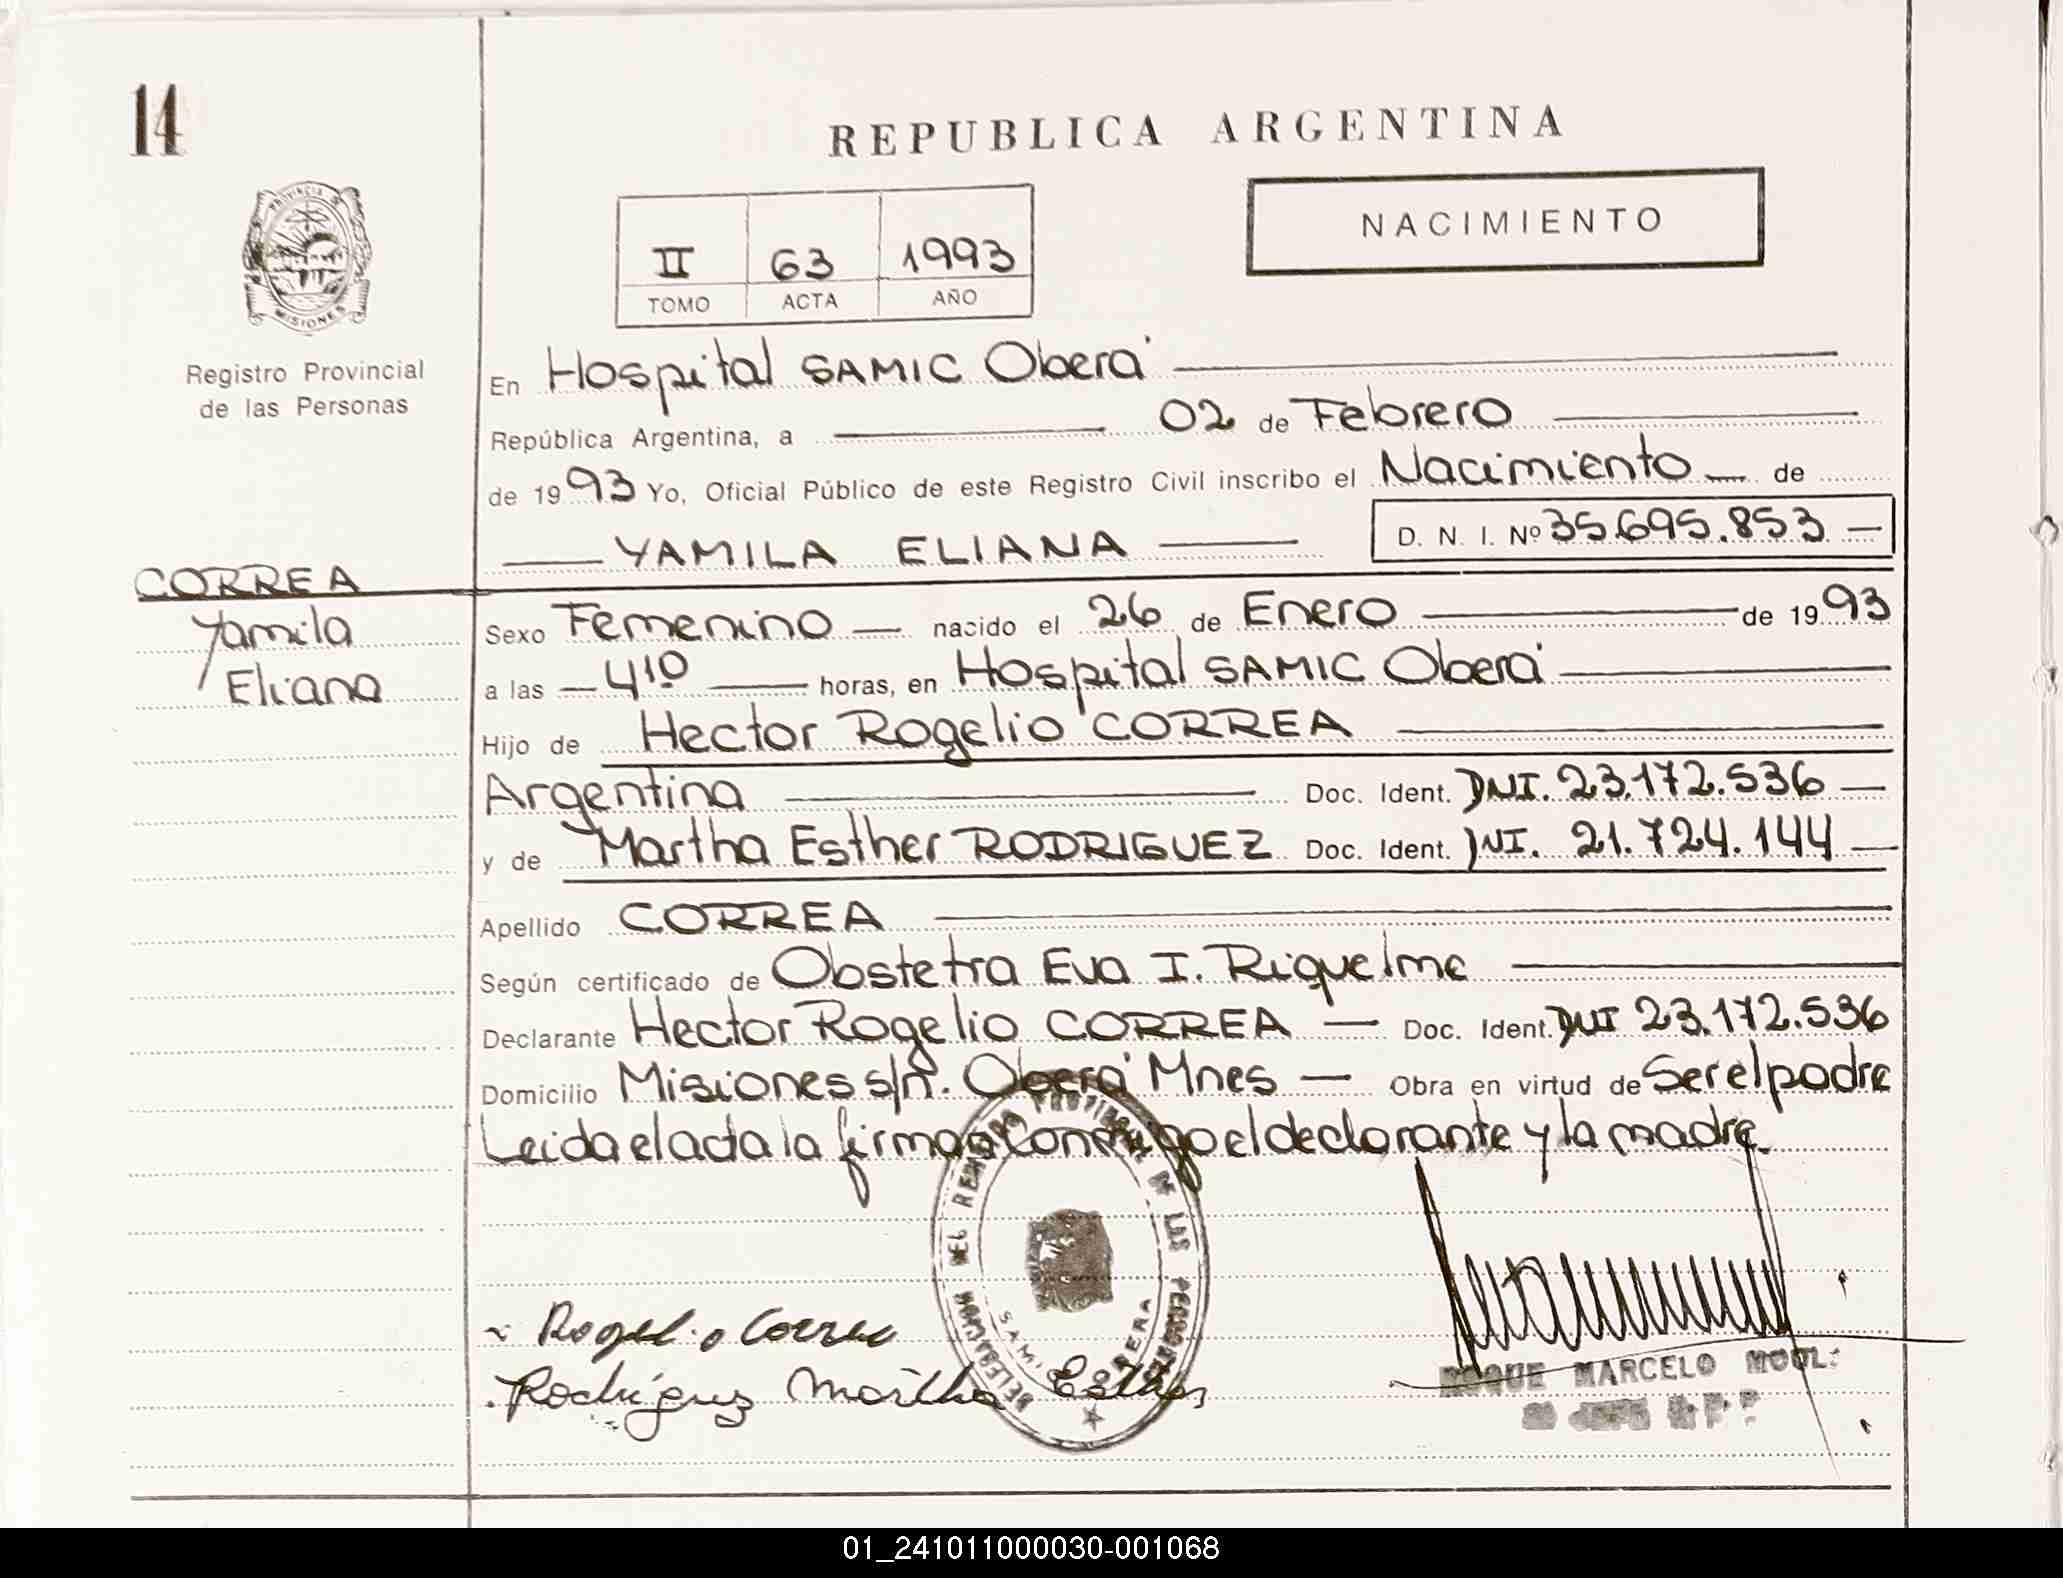 14
REPUBLICA ARGENTINA
PROVINCIA DE
MISIONES
Registro Provincial
de las Personas
NACIMIENTO
II 63 1993
TOMO ACTA AÑO
En Hospital SAMIC Oberá
República Argentina, a 02 de Febrero
de 1993 Yo, Oficial Público de este Registro Civil inscribo el Nacimiento de
YAMILA ELIANA D. N. I. Nº 35.695.853
CORREA
Yamila
Eliana
Sexo Femenino nacido el 26 de Enero de 1993
a las 4¹⁰ horas, en Hospital SAMIC Oberá
Hijo de Hector Rogelio CORREA
Argentina Doc. Ident. DNI. 23.172.536
y de Martha Esther RODRIGUEZ Doc. Ident. DNI. 21.724.144
Apellido CORREA
Según certificado de Obstetra Eva I. Riquelme
Declarante Hector Rogelio CORREA Doc. Ident. DNI 23.172.536
Domicilio Misiones s/n. Oberá Mnes Obra en virtud de Ser el padre
Leida el acta la firman conmigo el declarante y la madre.
DELEGACION DEL REGISTRO PROVINCIAL DE LAS PERSONAS
OBERA
Rogelio Correa
Rodriguez Martha Esther
ROQUE MARCELO
01_241011000030-001068